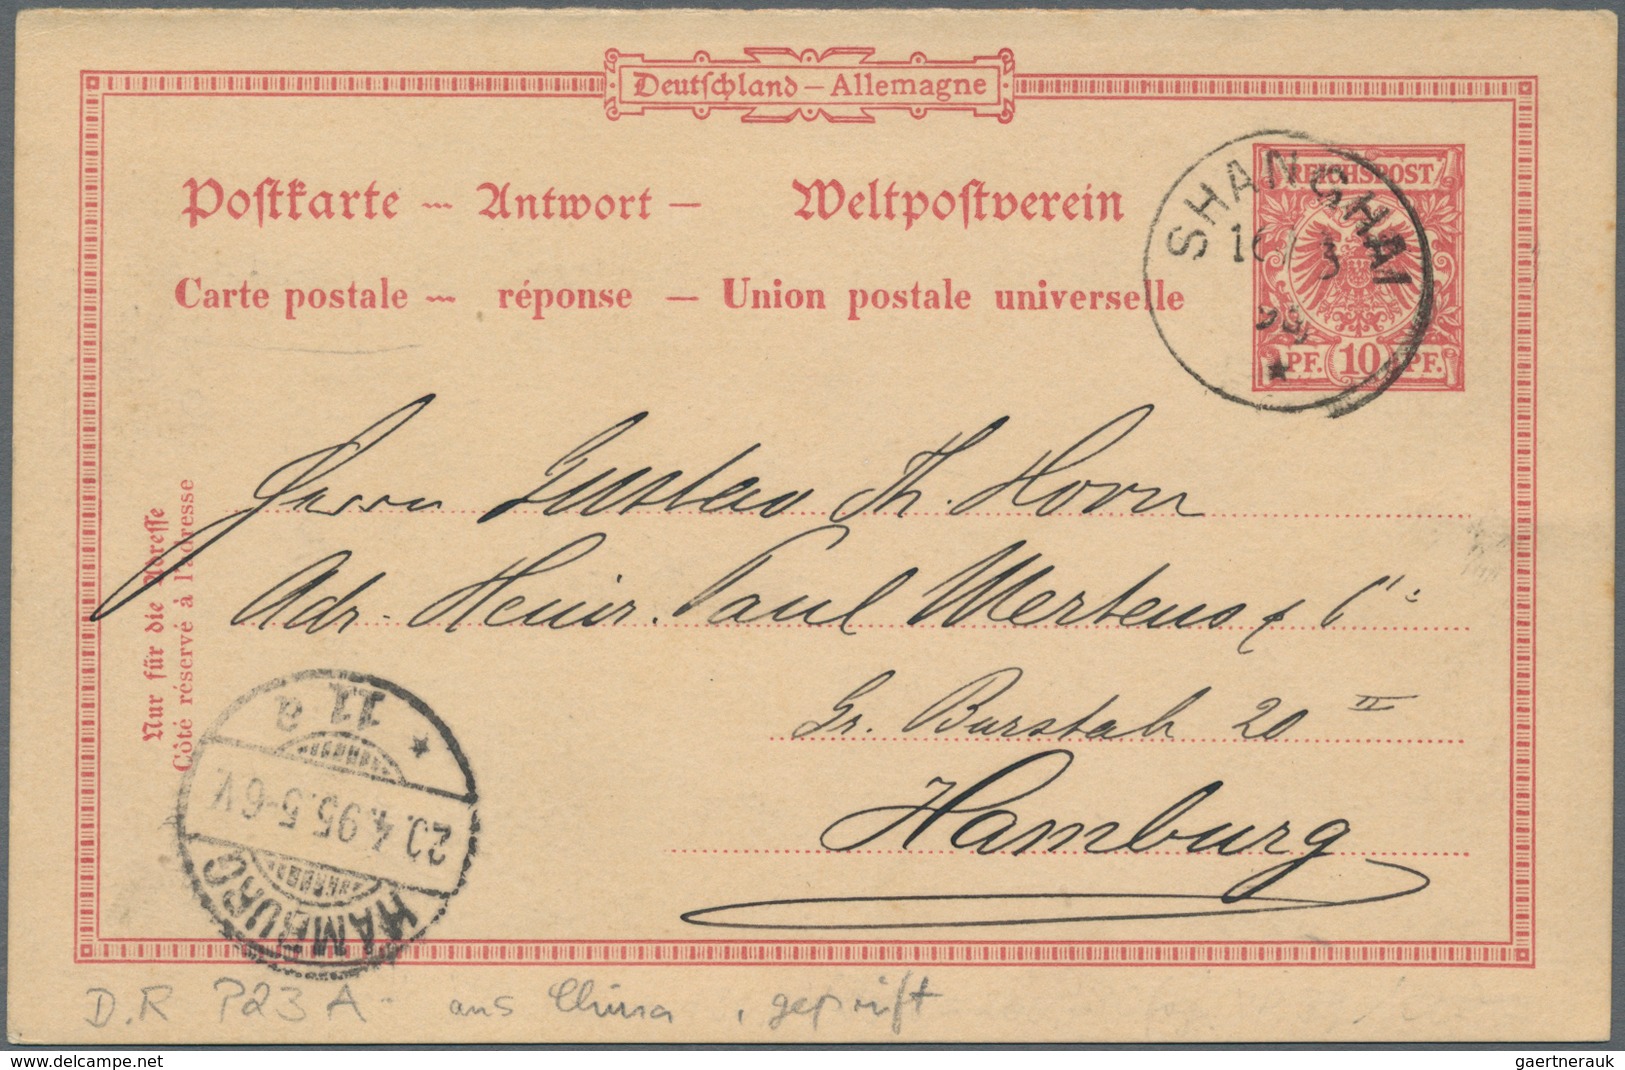 Deutschland – Allemagne
Postkarte – Antwort – Weltpostverein
Carte postale – réponse – Union postale universelle
REICHSPOST
PF. 10 PF.
SHANGHAI
16 3
Nur für die Adresse
Côté réservé à l'adresse
Herrn Gustav Th. Horn
Adr. Heinr. Paul Mertens & Co:
Gr. Burstah 20 II
Hamburg
HAMBURG
20.4.95.5-6V.
11 a
D.R P23 A - aus China, geprüft
www.delcampe.net
gaertnerauk